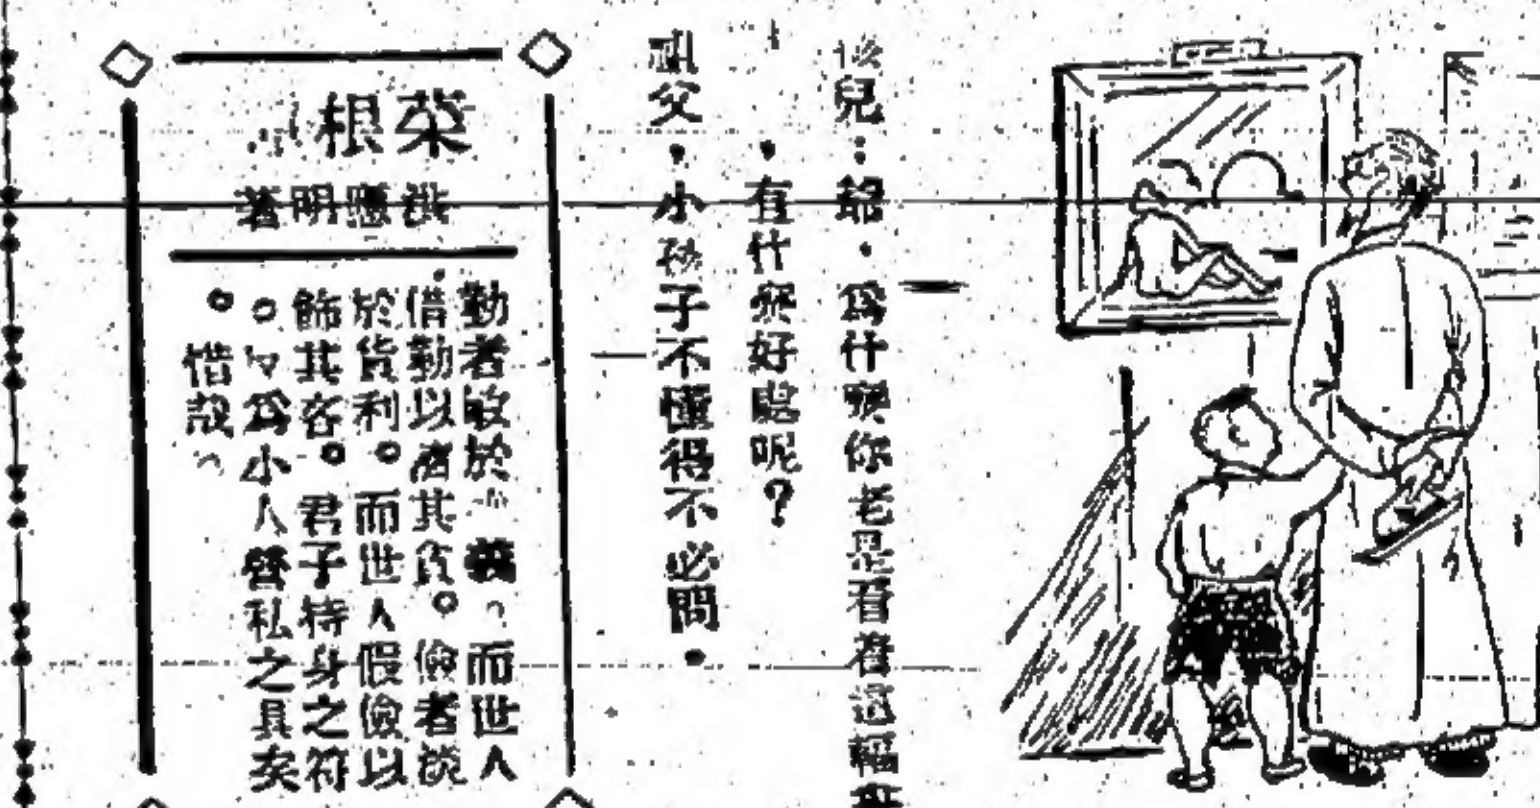 孩兒：爺，爲什麽你老是看着這幅
，有什麽好處呢？
祖父，小孩子不懂得不必問。
菜根
洪應明著
勤者敏於義，而世人
借勤以濟其貪。儉者淡
於貨利。而世人假儉以
飾其吝。君子持身之符
。爲小人營私之具矣
。惜哉